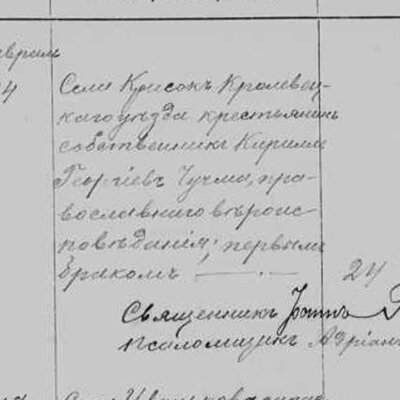 4 Села Крисокъ Кролевец-
каго уѣзда крестьянинъ
собственникъ Кирилъ
Георгіевъ Чучма, пра-
вославнаго вѣроис-
повѣданія; первымъ
бракомъ 24
Священникъ Іоаннъ
псаломщикъ Адріанъ